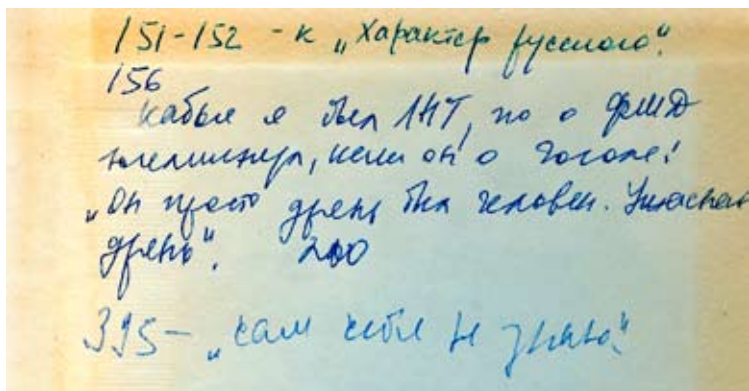 151-152 - к „Характер русского".
156
Кабы я был ЛНТ, но о ФМД
, чем он о Гоголе:
„Он просто дрянь был человек. Ужасная
дрянь". 200
395 - „сам себя не знаю."